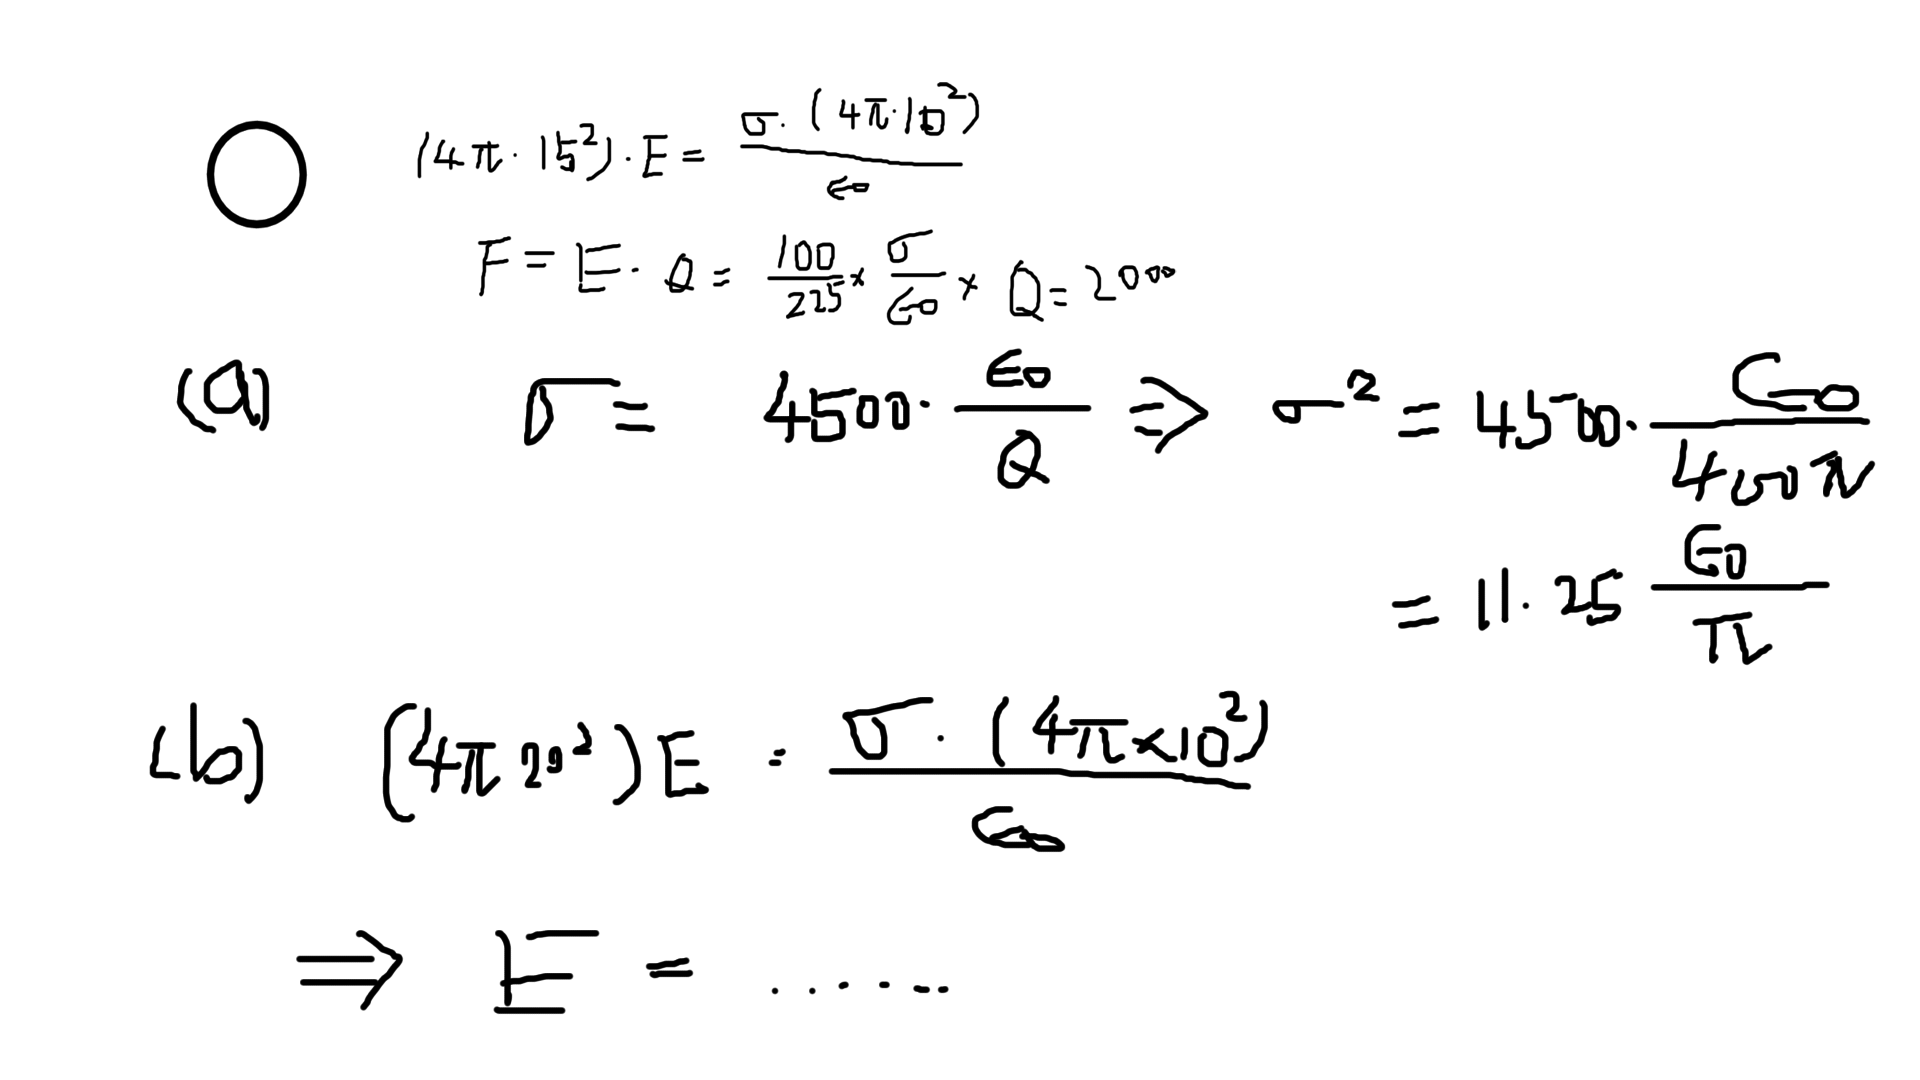 (4π · 15²) · E = σ · (4π · 10²) / ϵ₀
F = E · Q = 100/225 × σ/ϵ₀ × Q = 2000
(a) σ = 4500 · ϵ₀/Q ⇒ σ² = 4500 · ϵ₀/400π
= 11.25 ϵ₀/π
(b) (4π 20²) E = σ · (4π × 10²) / ϵ₀
⇒ E = ......